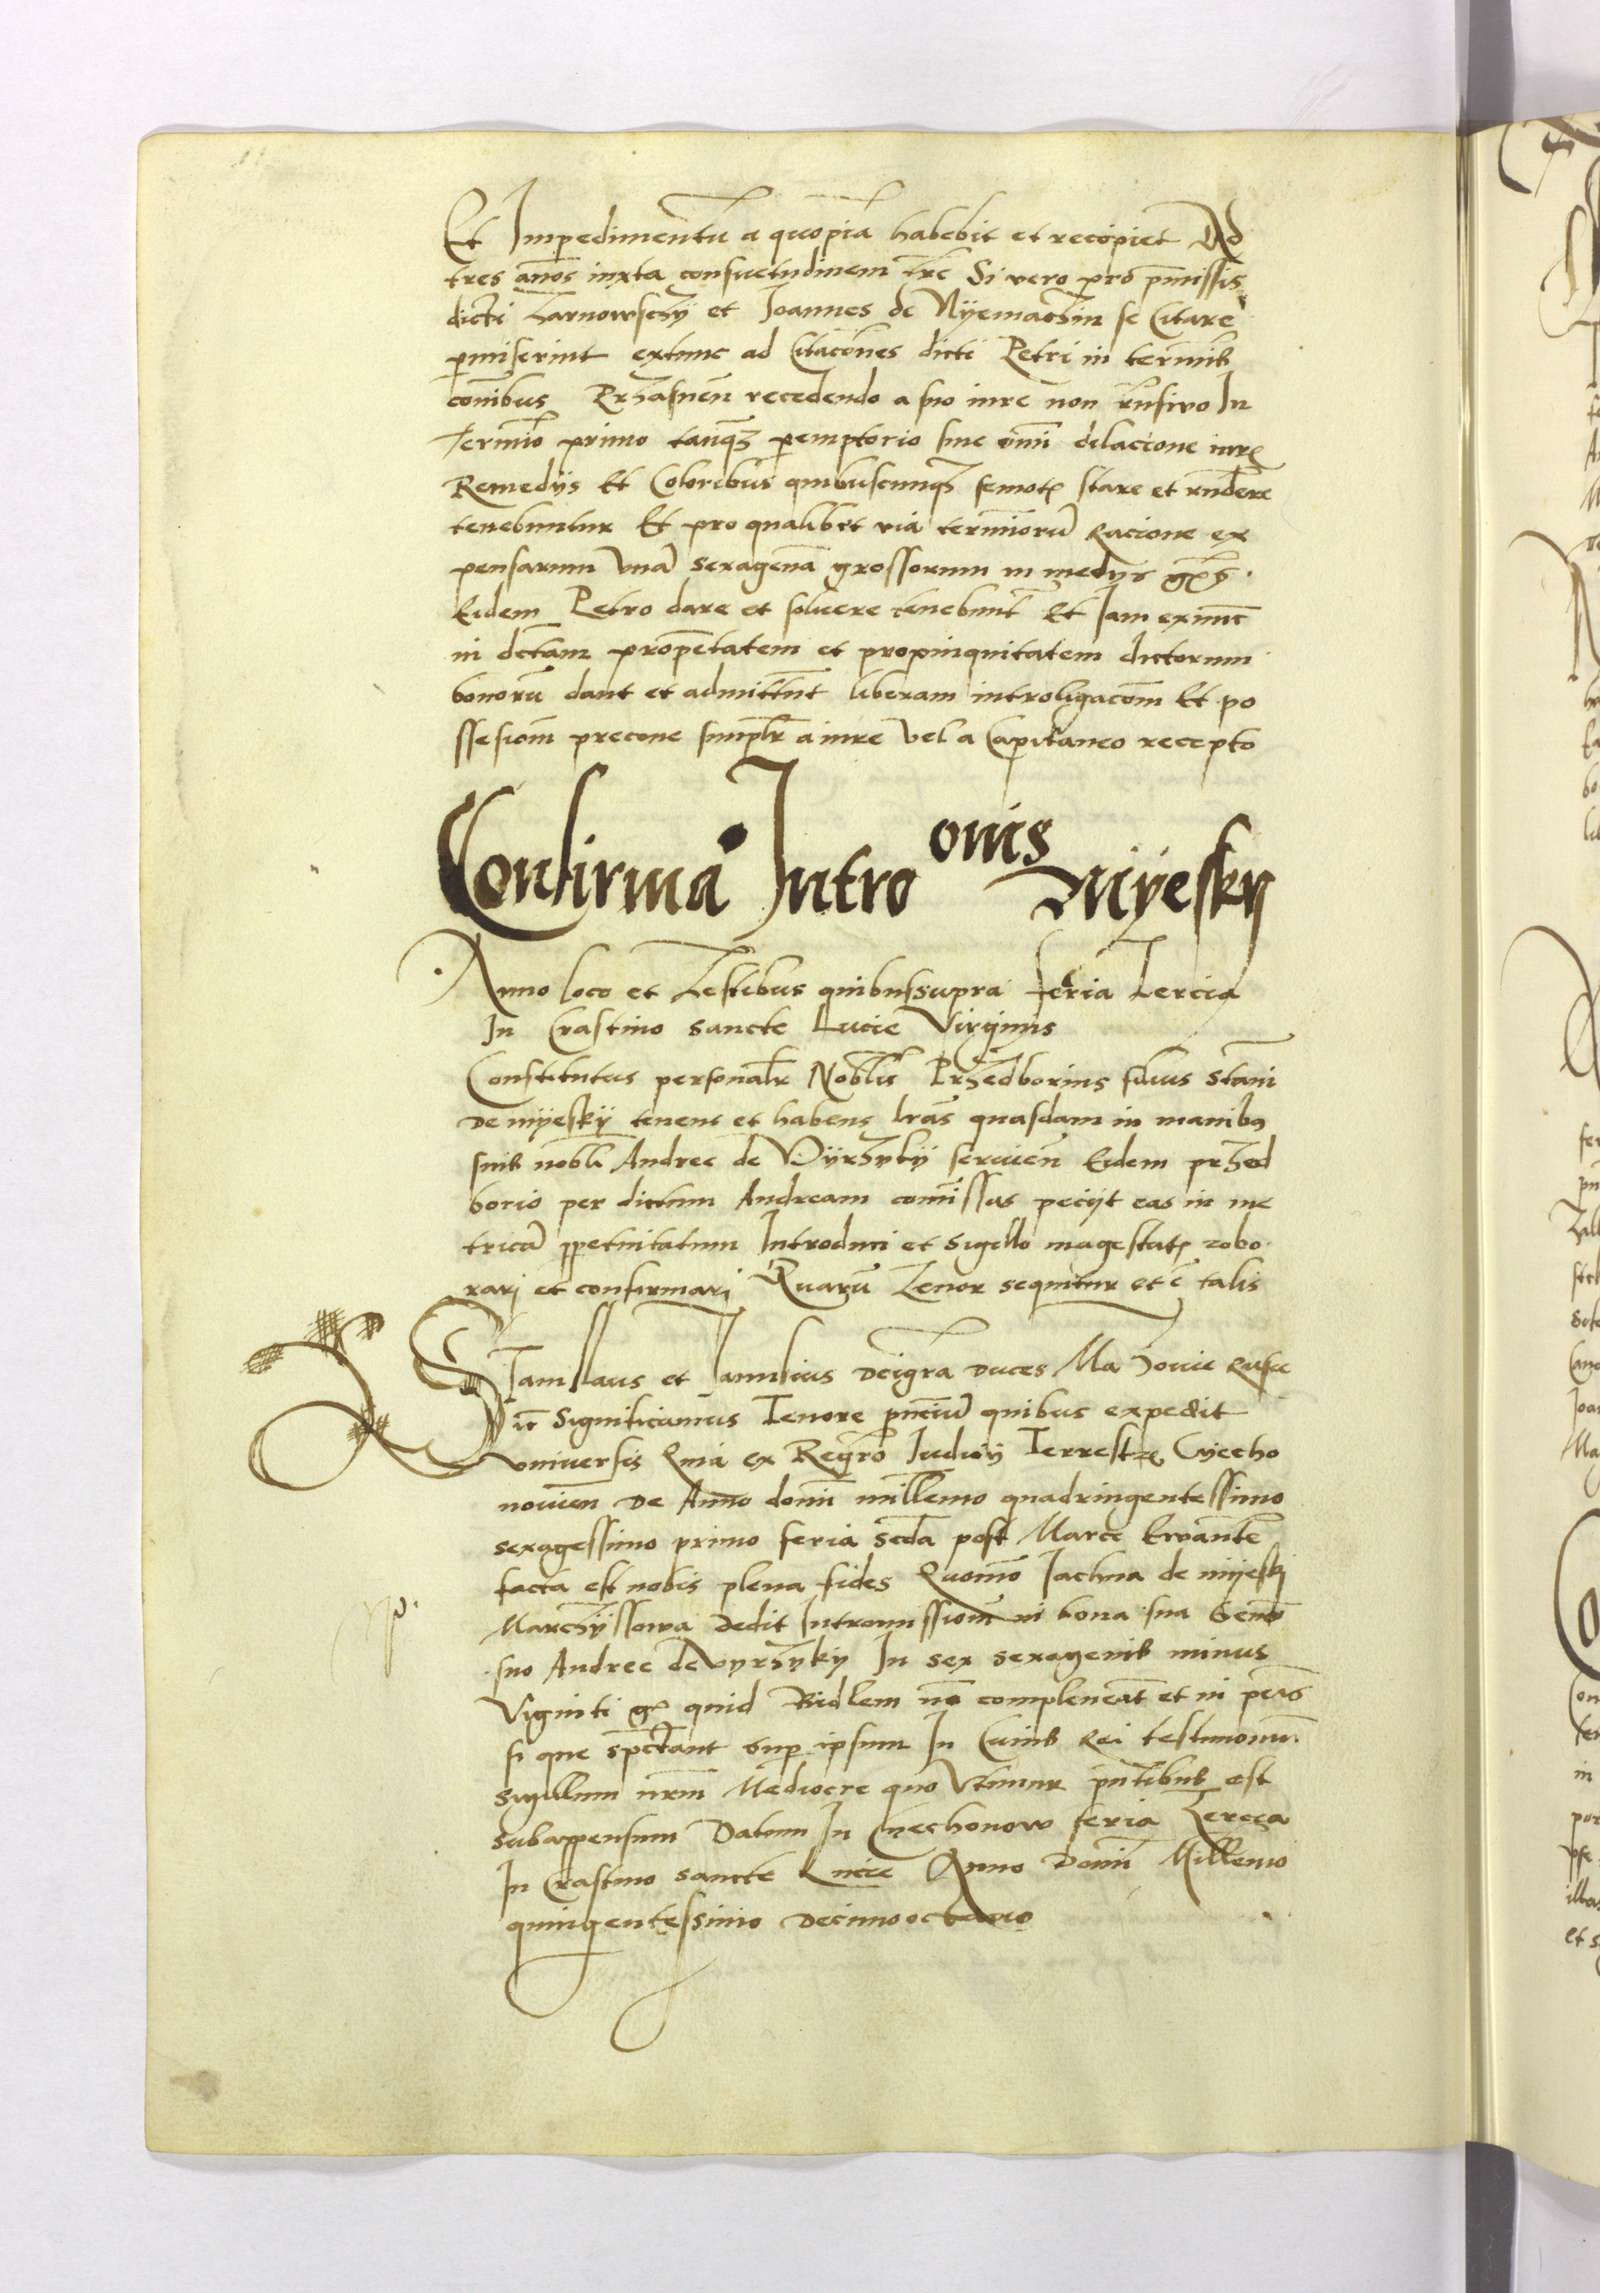 Et Impedimentū a quopiā habebit et recipiet Ad
tres annos iuxta consuetudinem tre Si vero pro pmissis
dicti Tarnowschy et Joannes de Nyemachin se Citare
pmiserint extunc ad Citacōnes dicti Petri in termīs
cōnibus Przasnen recedendo a suo iure non Rnsivo In
Termīo primo tanqz peremptorio sine omī dilacione iurᵉ
Remedys Et Coloribus quibuscunqz semotᵉ stare et rndere
tenebuntur Et pro qualibet via termīorū Racione ex
pensarum Vnā sexagenā grossorum in medys
Eidem Petro dare et solvere tenebunt Et Jam exnunc
in dctam propetatem et propinquitatem dictorum
bonorū dant et admittunt liberam introligacōm Et po
ssesionē precone simplr a iure Vel a Capitaneo recepto
Confirmā Introonis Myesky
Anno loco et Testibus quibussupra feria Tercia
In Crastino sancte Lucie Virginis
Constitutus personalr Noblis Przedborius filius Stani
de myesky tenens et habens lras quasdam in manibꝰ
suis nobli Andree de Vyrzyky servien Eidem przed
borio per dictum Andream comissas peciit eas in me
tricā ppetuitatum Introduci et sigillo magestatᵉ robo
rari et confirmari Quarū Tenor sequitur et ē talis
Stanislaus et Janusius dei gra duces Mazovie Rusie
ic Significamus Tenore pnciū quibus expedit
vniversis Quia ex Regro Iudicij Terrestrᵉ Cyecho
novien de Anno domī millemo quadringentessimo
sexagessimo primo feria Scda post Marci Ewante
facta est nobis plena fides Quomō Jachna de myeski
Marchyssowa dedit Intromissionē in bona sua Genō
suo Andree de vyrzyky In sex sexagenis minus
Viginti gᵒ quid Ridlem nō compleveat et in peis
si que spectant sup ipsum In Cuius Rei testimoniū
sigillum nrm Mediocre quo Vtimur pntibus est
subappensum Datum In Cyechonow feria Tercia
In Crastino sancte Lucie Anno Domī Millemo
quingentessimo decimooctavo